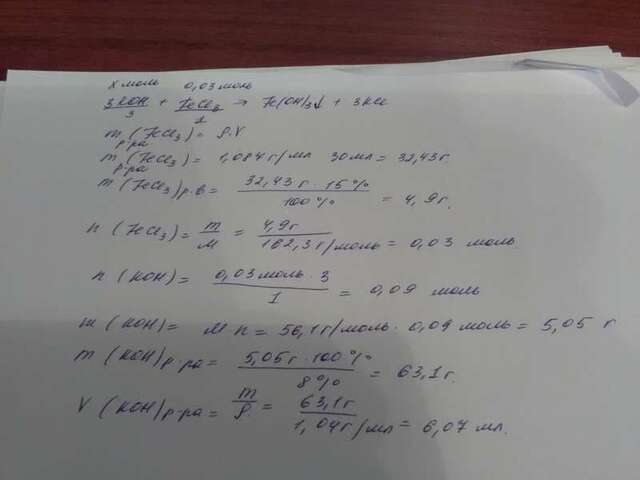 x моль 0,03 моль
3KOH + FeCl3 → Fe(OH)3↓ + 3KCl
3 1
m (FeCl3) = ρ·V
р-ра
m (FeCl3) = 1,084 г/мл 30 мл = 32,43 г.
р-ра
m (FeCl3)р.в = 32,43 г · 15 % / 100 % = 4,9 г.
n (FeCl3) = m / M = 4,9 г / 162,3 г/моль = 0,03 моль
n (KOH) = 0,03 моль · 3 / 1 = 0,09 моль
m (KOH) = M n = 56,1 г/моль · 0,09 моль = 5,05 г
m (KOH)р-ра = 5,05 г · 100 % / 8 % = 63,1 г.
V (KOH)р-ра = m / ρ = 63,1 г / 1,04 г/мл = 6,07 мл.